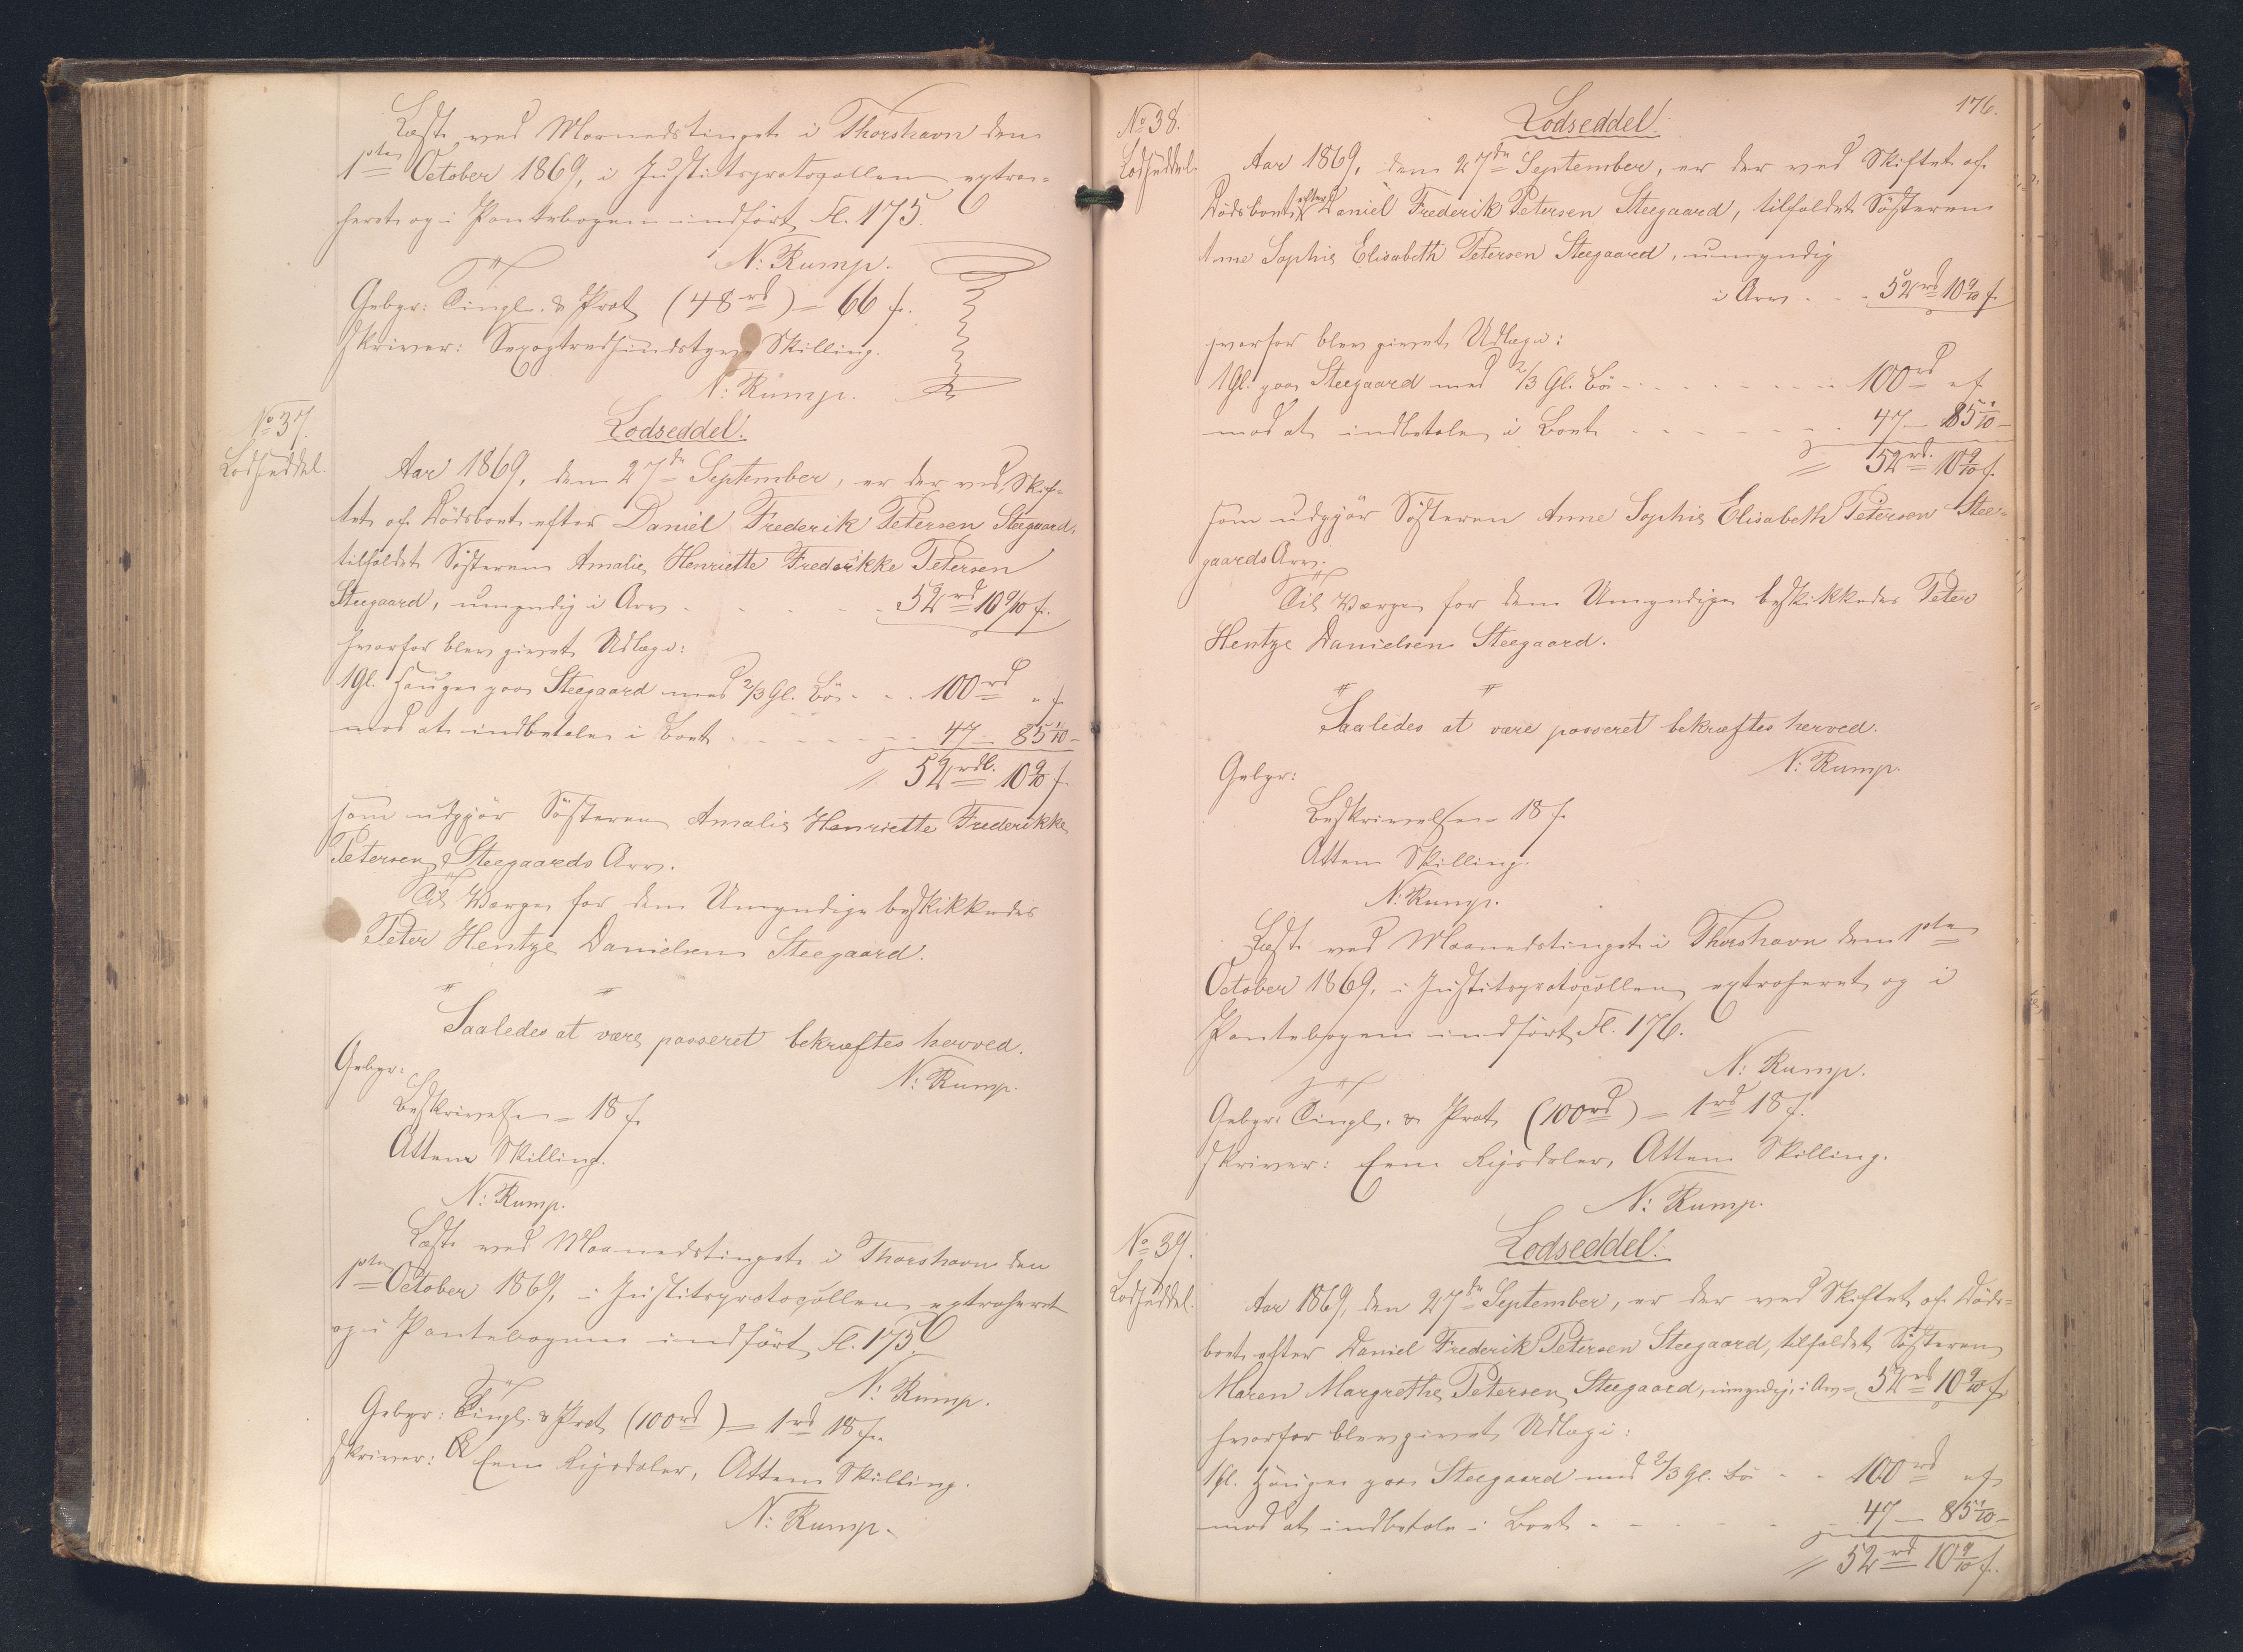 Læst ved Maanedstinget i Thorshavn den
1ste October 1869, i Justitsprotocollen extra=
heret og i Pantebogen indført Fl. 175.
N: Rump.
Gebyr: Tingl. & Prot (48rd) = 66 s.
skriver: Sexogtredsindstyve Skilling.
N: Rump.
No 37.
Lodseddel.
Lodseddel.
Aar 1869, den 27de September, er der ved Skif=
tet af Dödsboet efter Daniel Frederik Petersen Steegaard,
tilfaldet Söstern Amalie Henriette Frederikke Petersen
Steegaard, umyndig i Arv - - - 52rd 10 9/10 s.
hvorfor blev givet Udlæg:
1 Gl. Hauge paa Steegaard med 2/3 Gl. Bö - - 100rd " s
mod at indbetale i Boet - - - 47 - 85 1/10 -
= 52rdl. 10 9/10 s.
som udgjör Söstern Amalie Henriette Frederikke
Petersen Steegaards Arv.
Til Værge for den Umyndige beskikkedes
Peter Hentze Danielsen Steegaard.
Saaledes at være passeret bekræftes herved.
N: Rump.
Gebyr:
Beskrivelsen = 18 s.
Atten Skilling.
N: Rump.
Læst ved Maanedstinget i Thorshavn den
1ste October 1869, i Justitsprotocollen extraheret
og i Pantebogen indført Fl. 175.
N: Rump.
Gebyr: Tingl. & Prot (100rd) = 1rd 18 s.
skriver: Een Rigsdaler, Atten Skilling.
N: Rump.
176.
No 38.
Lodseddel.
Lodseddel.
Aar 1869, den 27de September, er der ved Skiftet af
Dödsboet efter Daniel Frederik Petersen Steegaard, tilfaldet Söstern
Anne Sophie Elisabeth Petersen Steegaard, umyndig
i Arv - - - 52rd 10 9/10 s.
hvorfor blev givet Udlæg:
1 Gl. paa Steegaard med 2/3 Gl. Bö - - - 100rd " s
mod at indbetale i Boet - - - 47 - 85 1/10 -
= 52rd. 10 9/10 s.
som udgjör Söstern Anne Sophie Elisabeth Petersen Stee=
gaards Arv.
Til Værge for den Umyndige beskikkedes Peter
Hentze Danielsen Steegaard.
Saaledes at være passeret bekræftes herved.
N: Rump.
Gebyr:
Beskrivelsen = 18 s.
Atten Skilling.
N: Rump.
Læst ved Maanedstinget i Thorshavn den 1ste
October 1869, i Justitsprotocollen extraheret og i
Pantebogen indført Fl. 176.
N: Rump.
Gebyr: Tingl. & Prot (100rd) = 1rd 18 s.
skriver: Een Rigsdaler, Atten Skilling.
N: Rump.
No 39.
Lodseddel.
Lodseddel.
Aar 1869, den 27de September, er der ved Skiftet af Döds=
boet efter Daniel Frederik Petersen Steegaard, tilfaldet Söstern
Maren Margrethe Petersen Steegaard, umyndig, i Arv - 52rd 10 9/10 s.
hvorfor blev givet Udlæg:
1 Gl. Hauge paa Steegaard med 2/3 Gl. Bö - - 100rd " s
mod at indbetale i Boet - - - 47 - 85 1/10 -
= 52rd 10 9/10 s.